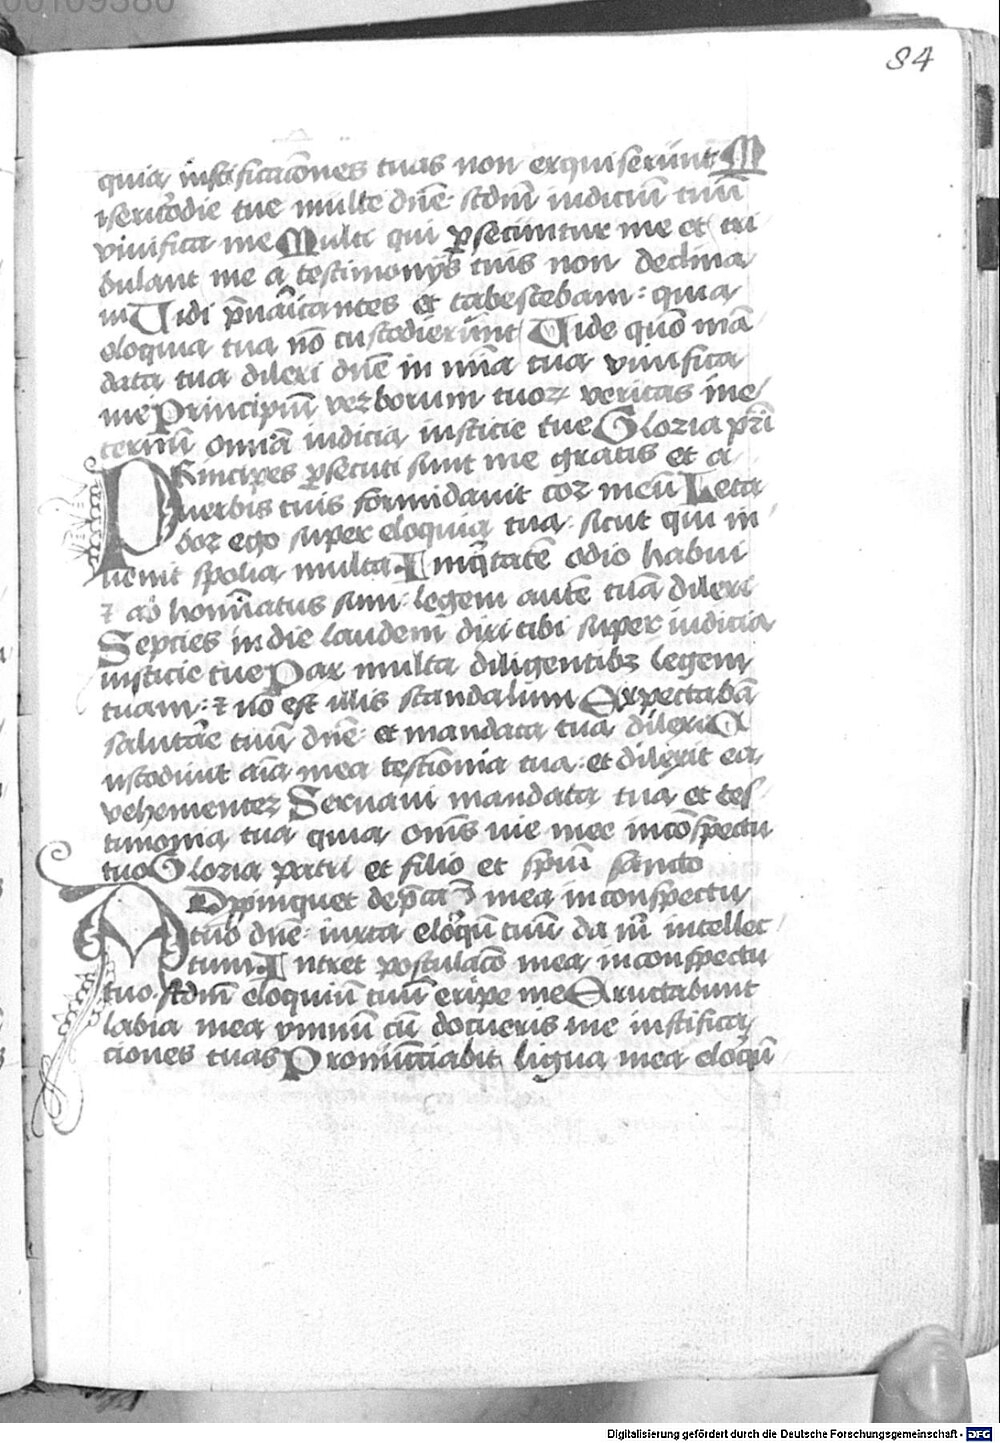 00109380
84
quia iustificacõnes tuas non exquiserũnt M
isericordie tue multe dñe scdm̃ iudiciũ tuũ
viuifica me Multi qui ꝑsecuntur me et tri
bulant me a testimonijs tuis non declina
ui Uidi p̃uaricantes et tabescebam : quia
eloquia tua nõ custodierũnt Uide quõ mã
data tua dilexi dñe in mĩa tua viuifica
me Principiũ verborum tuoꝝ veritas ine
ternũ omnia iudicia iusticie tue Gloria pr̃i
PRincipes ꝑsecuti sunt me gratis et a
uerbis tuis formidauit cor meũ Leta
bor ego super eloquia tua : sicut qui in
uenit spolia multa Iniq̃tatẽ odio habui
⁊ abhominatus sum : legem autẽ tuã dilexi
Septies in die laudem dixi tibi super iudicia
iusticie tue Pax multa diligentibꝫ legem
tuam : ⁊ nõ est illis scandalum Expectabã
salutãe tuũ dñe et mandata tua dilexi C
ustodiuit aĩa mea testiõnia tua : et dilexit ea
vehementer Seruaui mandata tua et tes
timonia tua quia om̃s uie mee in cõspectu
tuo Gloria patri et filio et spũi sancto
ADpinquet dep̃cã̃o mea in conspectu
tuo dñe iuxta eloq̃ũ tuũ da m̃ intellec
tum Intret postulacõ mea in conspectu
tuo scdm̃ eloquiũ tuũ eripe me Eructabunt
labia mea ymnũ cũ docueris me iustifica
ciones tuas Pronũnciabit lingua mea eloq̃ũ
Digitalisierung gefördert durch die Deutsche Forschungsgemeinschaft - DFG